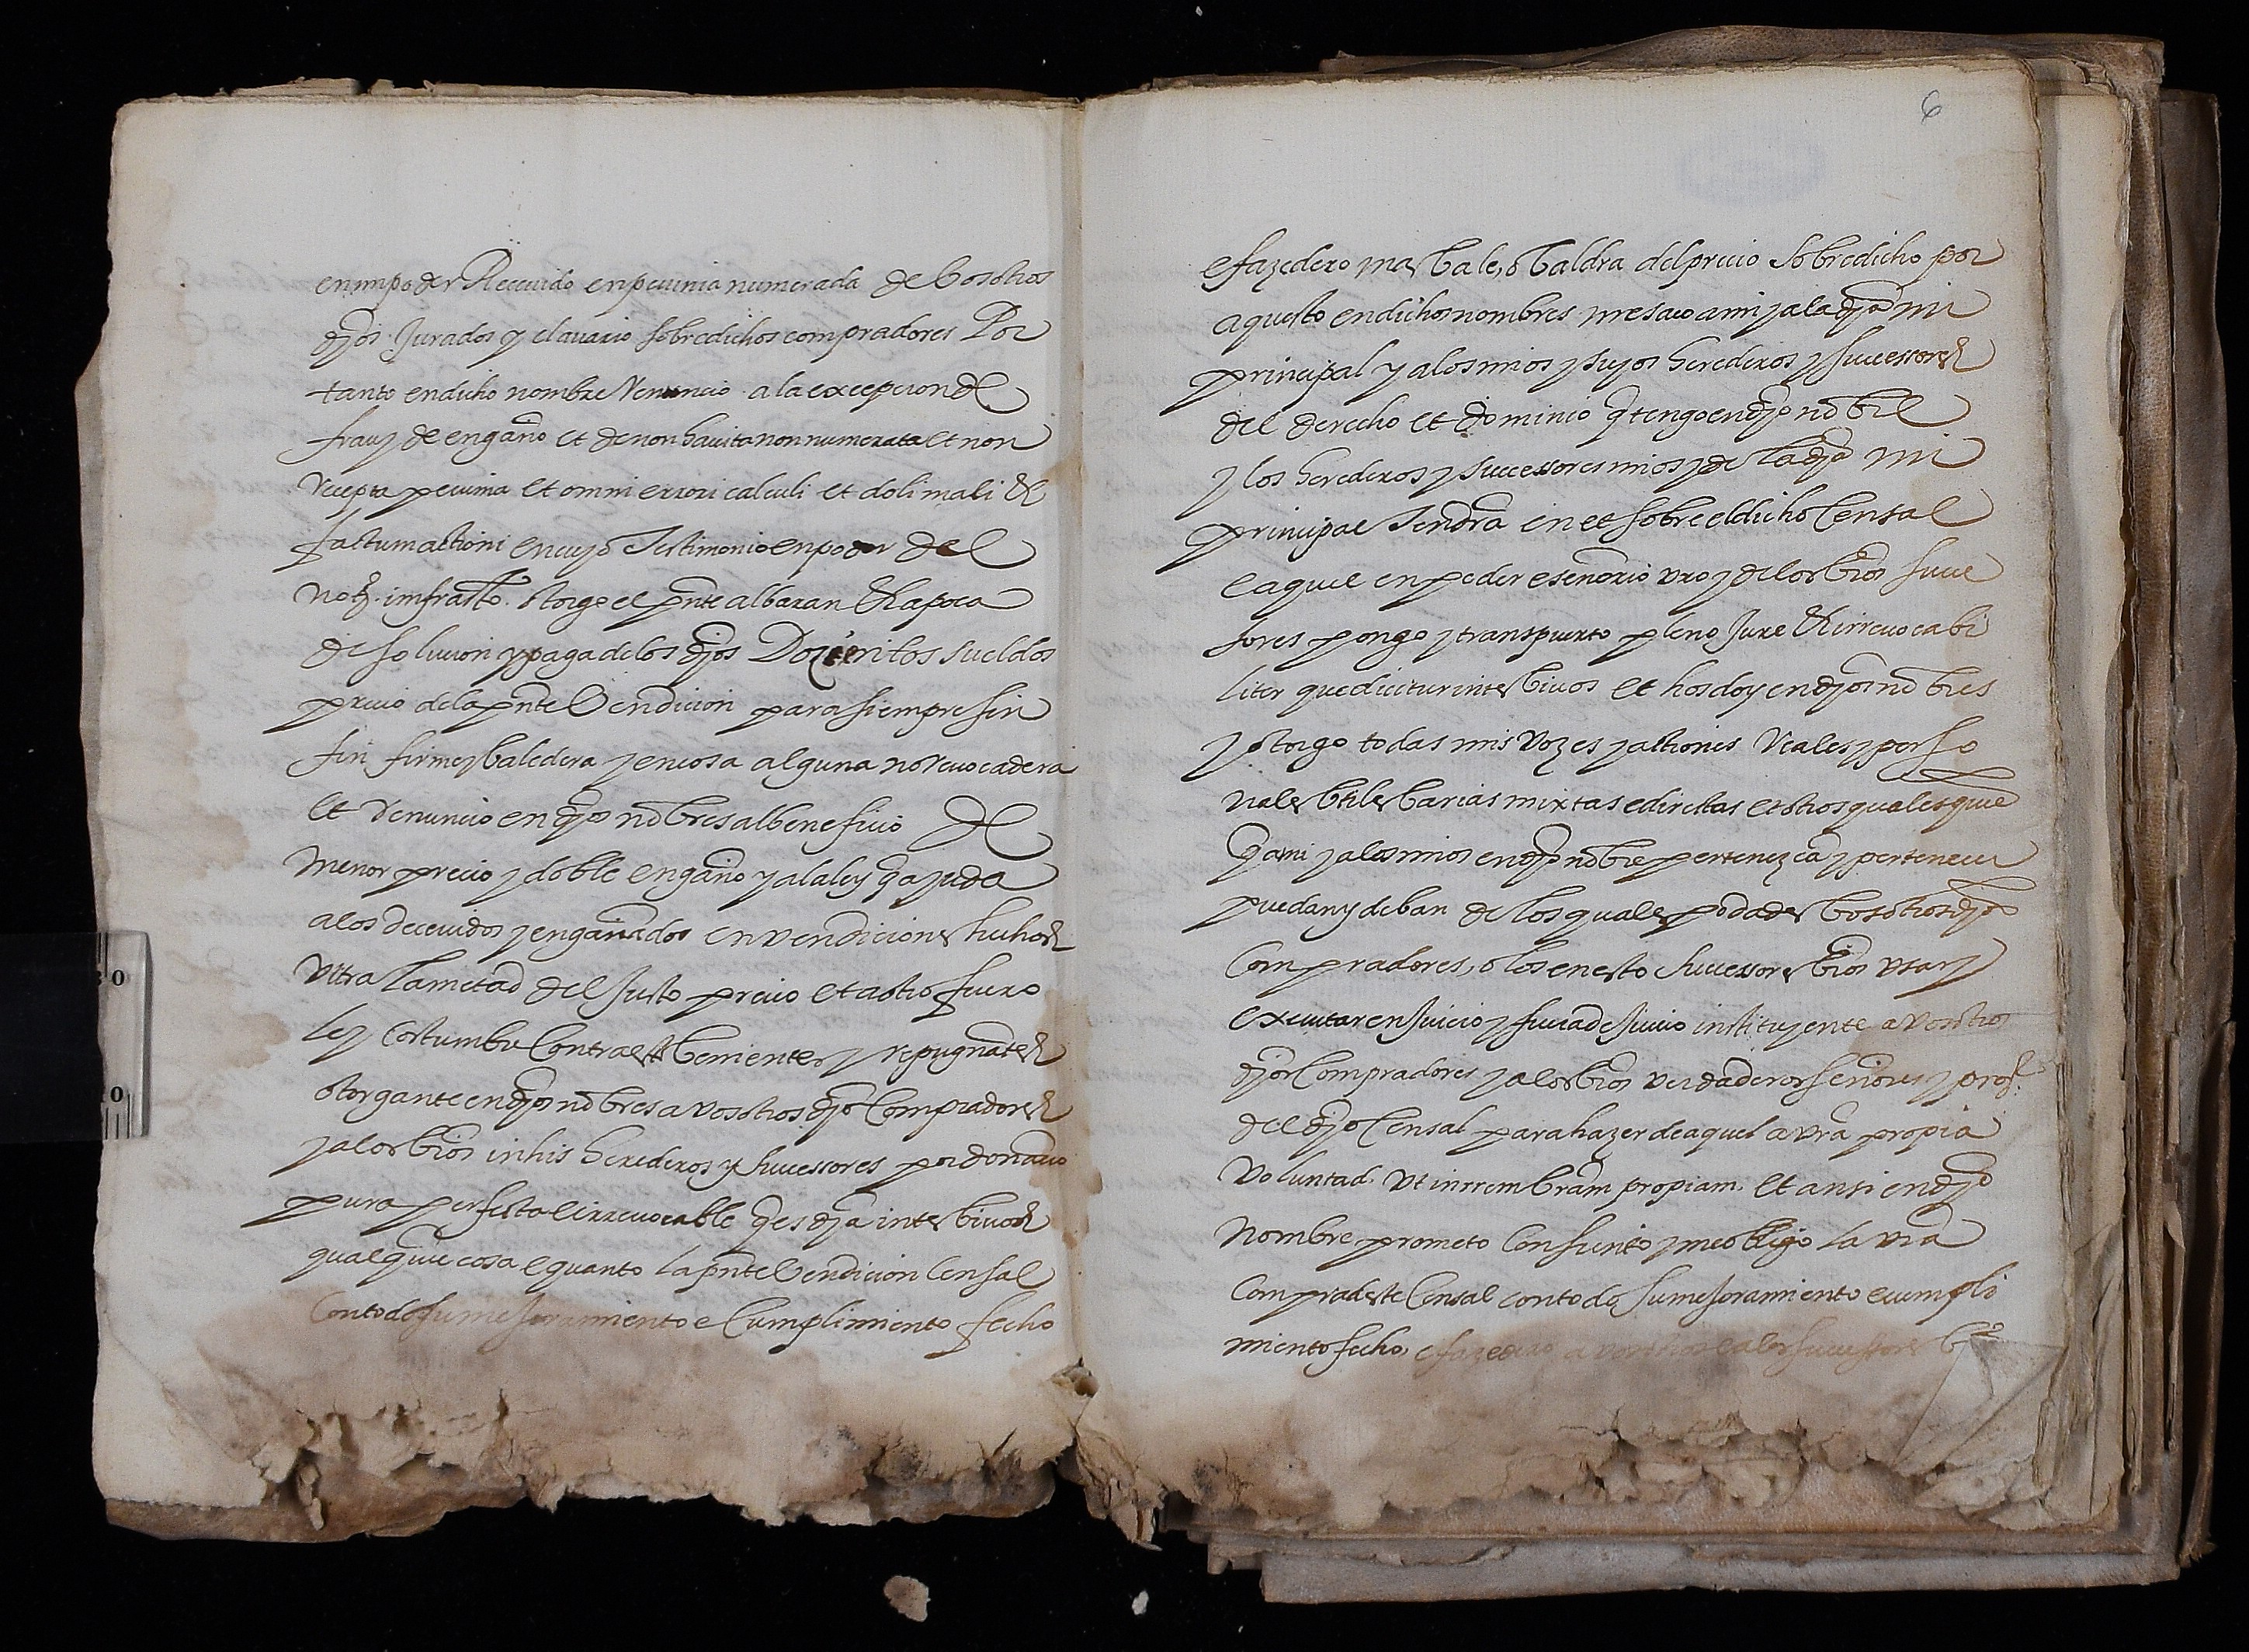 en mi poder Receuido en pecunia numerada de bosotros
djos Jurados y clauario sobredichos compradores Por
tanto en dicho nombre Renuncio a la excepcion de
frau y de engaño et de non hauita non numerata et non
recepta pecunia et omni errori calculi et doli mali &
factum actioni en cuyo Testimonio en poder del
Not. infrascto. otorgo el pnte albaran & apoca
de solucion y paga de los djos Dozientos sueldos
precio de la pnte Vendicion para siempre sin
fin firme y baledera y en cosa alguna no reuocadera
et renuncio en djos nobres al beneficio de
menor precio y doble engaño y a la ley q ayuda
a los deceuidos y engañados en vendiciones hechos
vltra la mitad del justo precio et a otro fuero
ley costumbre contra esto benientes y repugnates
otorgante en djos nobres a vosotros djos compradores
y a los bros in his herederos y successores por donacio
pura perfecta e irreuocable q es dja inter biuos
qualquie cosa e quanto la pnte Vendicion censal
con todo su mejoramiento e cumplimiento fecho
6
e fazedero mas bale, o baldra del precio sobredicho por
aquesto en dichos nombres me saco a mi y a la dja mi
principal y a los mios y suyos herederos y successores
del derecho et dominio q tengo en djo nobre
y los herederos y successores mios y de la dja mi
principal tendra en et sobre el dicho censal
e aquel en poder e señorio vro y de los bros succe
sores pongo y transpuerto pleno jure & irreuocabi
liter que dicitur inter biuos et hos doy en djos nobres
y otorgo todas mis vozes y actiones reales y perso
nales btiles barias mixtas e directas et otros qualesquie
q a mi y a los mios en djo nobre pertenezca y pertenecer
puedan y deban de los quales podades bosotros djos
compradores, o los en esto successores bros vsar y
executar en juicio y fuera de juicio instituyente a vosotros
djos compradores y a los bros verdaderos señores y pros.
del djo censal para hazer de aquel a vra propia
voluntad. vt in rem bram propiam. et ansi en djo
nombre prometo consiento y me obligo la vra
compra deste censal con todo su mejoramiento e cumpli
miento fecho, e fazedero a vosotros e a los successores bros